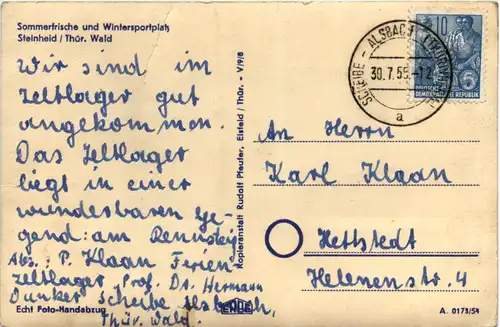 Sommerfrische und Wintersportplatz
Steinheid / Thür. Wald
Wir sind im
Zeltlager gut
angekommen.
Das Zeltlager
liegt in einer
wunderbaren Ge-
gend: am Rennsteig
Abs.: P. Klaan Ferien-
zeltlager „Prof. Dr. Hermann
Duncker" Scheibe Alsbach,
Thür. Wald.
Echt Foto-Handabzug
Kopieranstalt Rudolf Pfeufer, Eisfeld / Thür. - V/9/8
SCHEIBE - ALSBACH
30.7.55.-12
a
10
DEUTSCHE
DEMOKRATISCHE REPUBLIK
An Herrn
Karl Klaan
Hettstedt
Helenenstr. 4
A. 0173/54